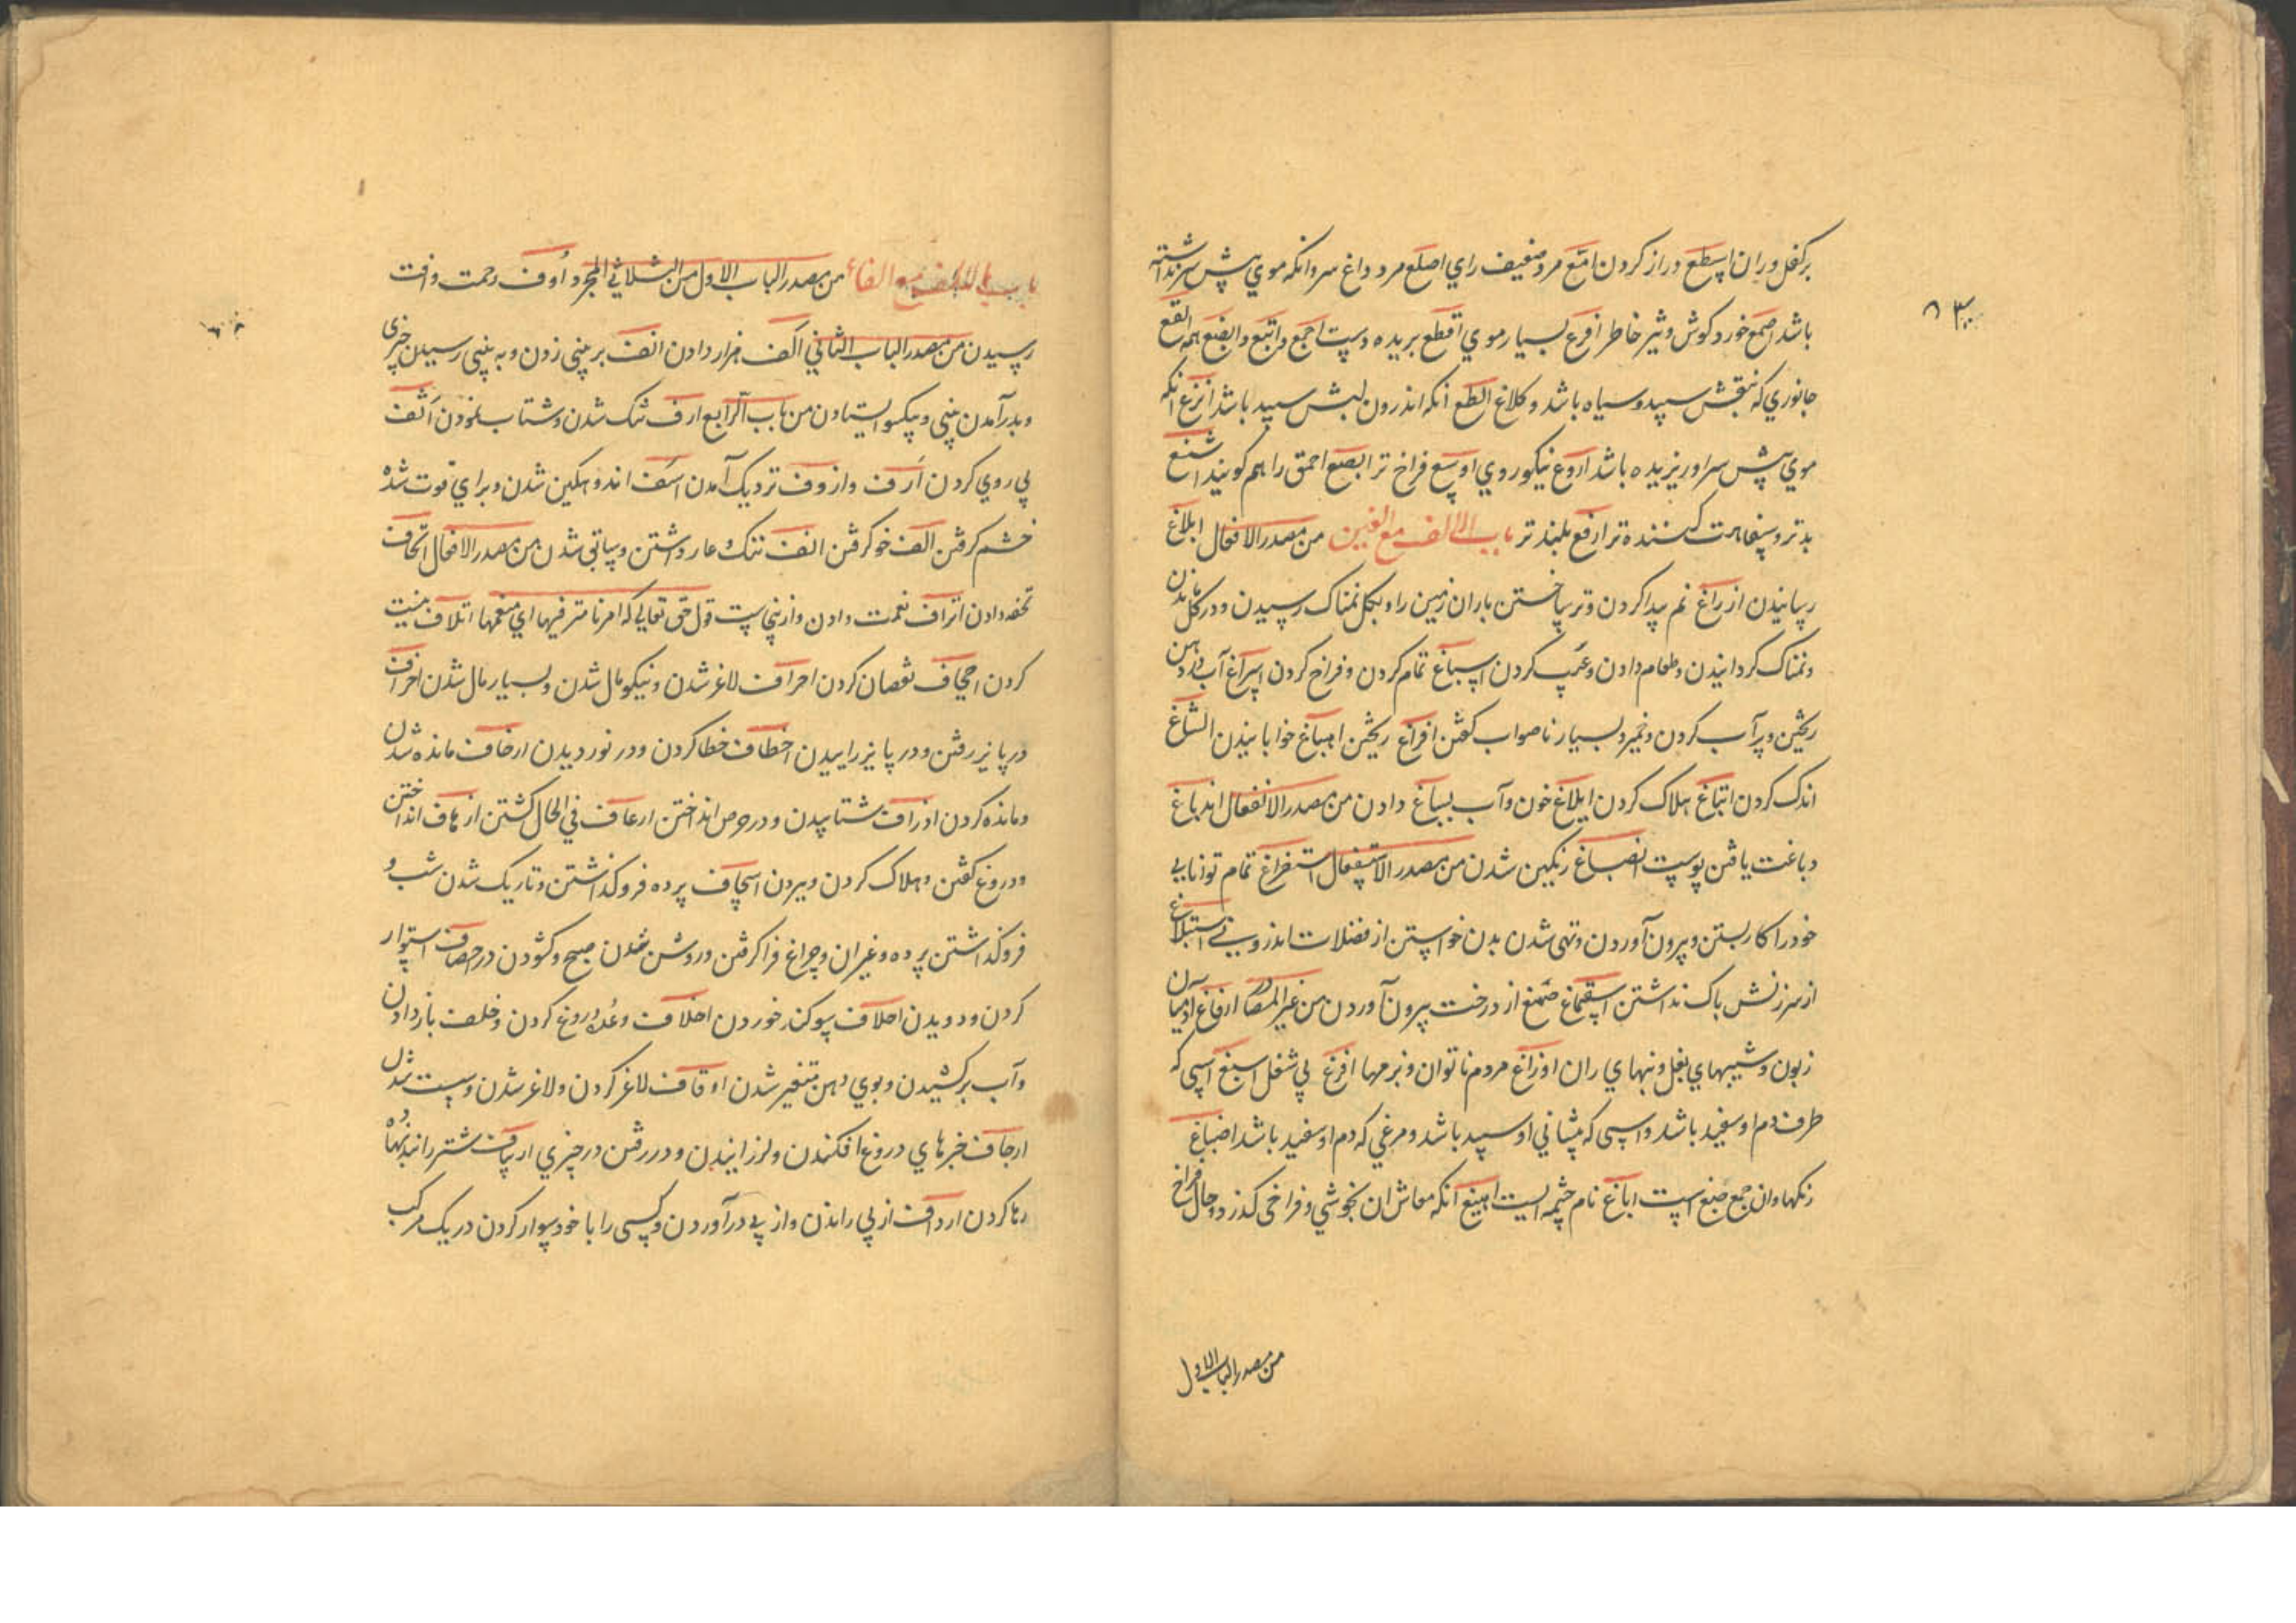 برکفل و ران اسطع دراز کردن امّع مرد ضعیف رای اصلع مرد داغ سر و انکه موی پیش سر نداشته
باشد اصمع خورد کوش و تیز خاطر افرع بسیار موی اقطع بریده دست اجمع و اتبع و ابضع همه القع
جانوری که نقش سپید و سیاه باشد و کلاغ الطع انکه اندرون لبش سپید باشد انزع انکه
موی پیش سر او ریزیده باشد اروع نیکو روی اوسع فراخ تر ابصع احمق را هم کویند اشنع
بدتر و سفاهت کننده تر ارفع بلندتر باب الالف مع الغین من مصدر الافعال ابلاغ
رسانیدن ازراغ نم پیدا کردن و تر ساختن باران زمین را و بکل نمناک رسیدن و در کل ماندن
و نمناک کردانیدن و طعام دادن و عیب کردن اسباغ تمام کردن و فراخ کردن اسراغ آب دهن
ریختن و پر آب کردن خمیر و بسیار ناصواب کفتن افراغ ریختن امباغ خوابانیدن انشاغ
اندک کردن اتباغ هلاک کردن ایلاغ خون و آب بسباغ دادن من مصدر الانفعال اندباغ
دباغت یافتن پوست انصباغ رنکین شدن من مصدر الاستفعال استفراغ تمام توانایی
خود را کار بستن و بیرون آوردن و تهی شدن بدن خواستن از فضلات اندرونی استبلاغ
از سرزنش باک نداشتن استصماغ صمغ از درخت بیرون آوردن من غیر المصادر ارفاغ آدمیان
زبون و شیبهای بغل و بنهای ران اوزاغ مردم ناتوان و بزمها افرغ بی شغل اسبغ اسبی که
طرف دم او سفید باشد و اسبی که پیشانی او سپید باشد و مرغی که دم او سفید باشد اصباغ
رنکها و ان جمع صبغ است اباغ نام چشمه ایست اهیغ انکه معاش ان بخوشی و فراخی کذرد و حال فراخ
من مصدر الباب الاول
باب الالف مع الفاء من مصدر الباب الاول من الثلاثی المجرد أوف رحمت و افت
رسیدن من مصدر الباب الثانی الف هزار دادن انف بر بینی زدن و به بینی رسیدن چیزی
و بدر آمدن بینی و یکسو ایستادن من باب الرابع ازف تنک شدن و شتاب نمودن اثف
پی روی کردن أزف و ازوف نزدیک آمدن اسف اندوهکین شدن و برای فوت شده
خشم کرفتن الف خو کرفتن انف ننک و عار داشتن و سیاتی شدن من مصدر الافعال اتحاف
تحفه دادن اتراف نعمت دادن و ازینجاست قول حق تعالی که امرنا مترفیها ای منعمها اتلاف نیست
کردن اجحاف نقصان کردن احراف لاغر شدن و نیکو مال شدن و بسیار مال شدن اخراف
در پاییز رفتن و در پاییز زاییدن اخطاف خطا کردن و در نوردیدن ارخاف مانده شدن
و مانده کردن اذراف شتابیدن و در حوض انداختن ارعاف فی الحال کشتن ازهاف انداختن
و دروغ کفتن و هلاک کردن و بردن اسجاف پرده فروکذاشتن و تاریک شدن شب و
فروکذاشتن پرده و غیر ان و چراغ فرا کرفتن و روشن شدن صبح و کشودن در احصاف استوار
کردن و دویدن احلاف سوکند خوردن اخلاف وعده دروغ کردن و خلف باز دادن
و آب برکشیدن و بوی دهن متغیر شدن اوقاف لاغر کردن و لاغر شدن و سست شدن
ارجاف خبرهای دروغ افکندن و لرزانیدن و در رفتن در چیزی ارساف شتر را بند نهاده
رها کردن ارداف از پی راندن و از پی در آوردن و کسی را با خود سوار کردن در یک مرکب